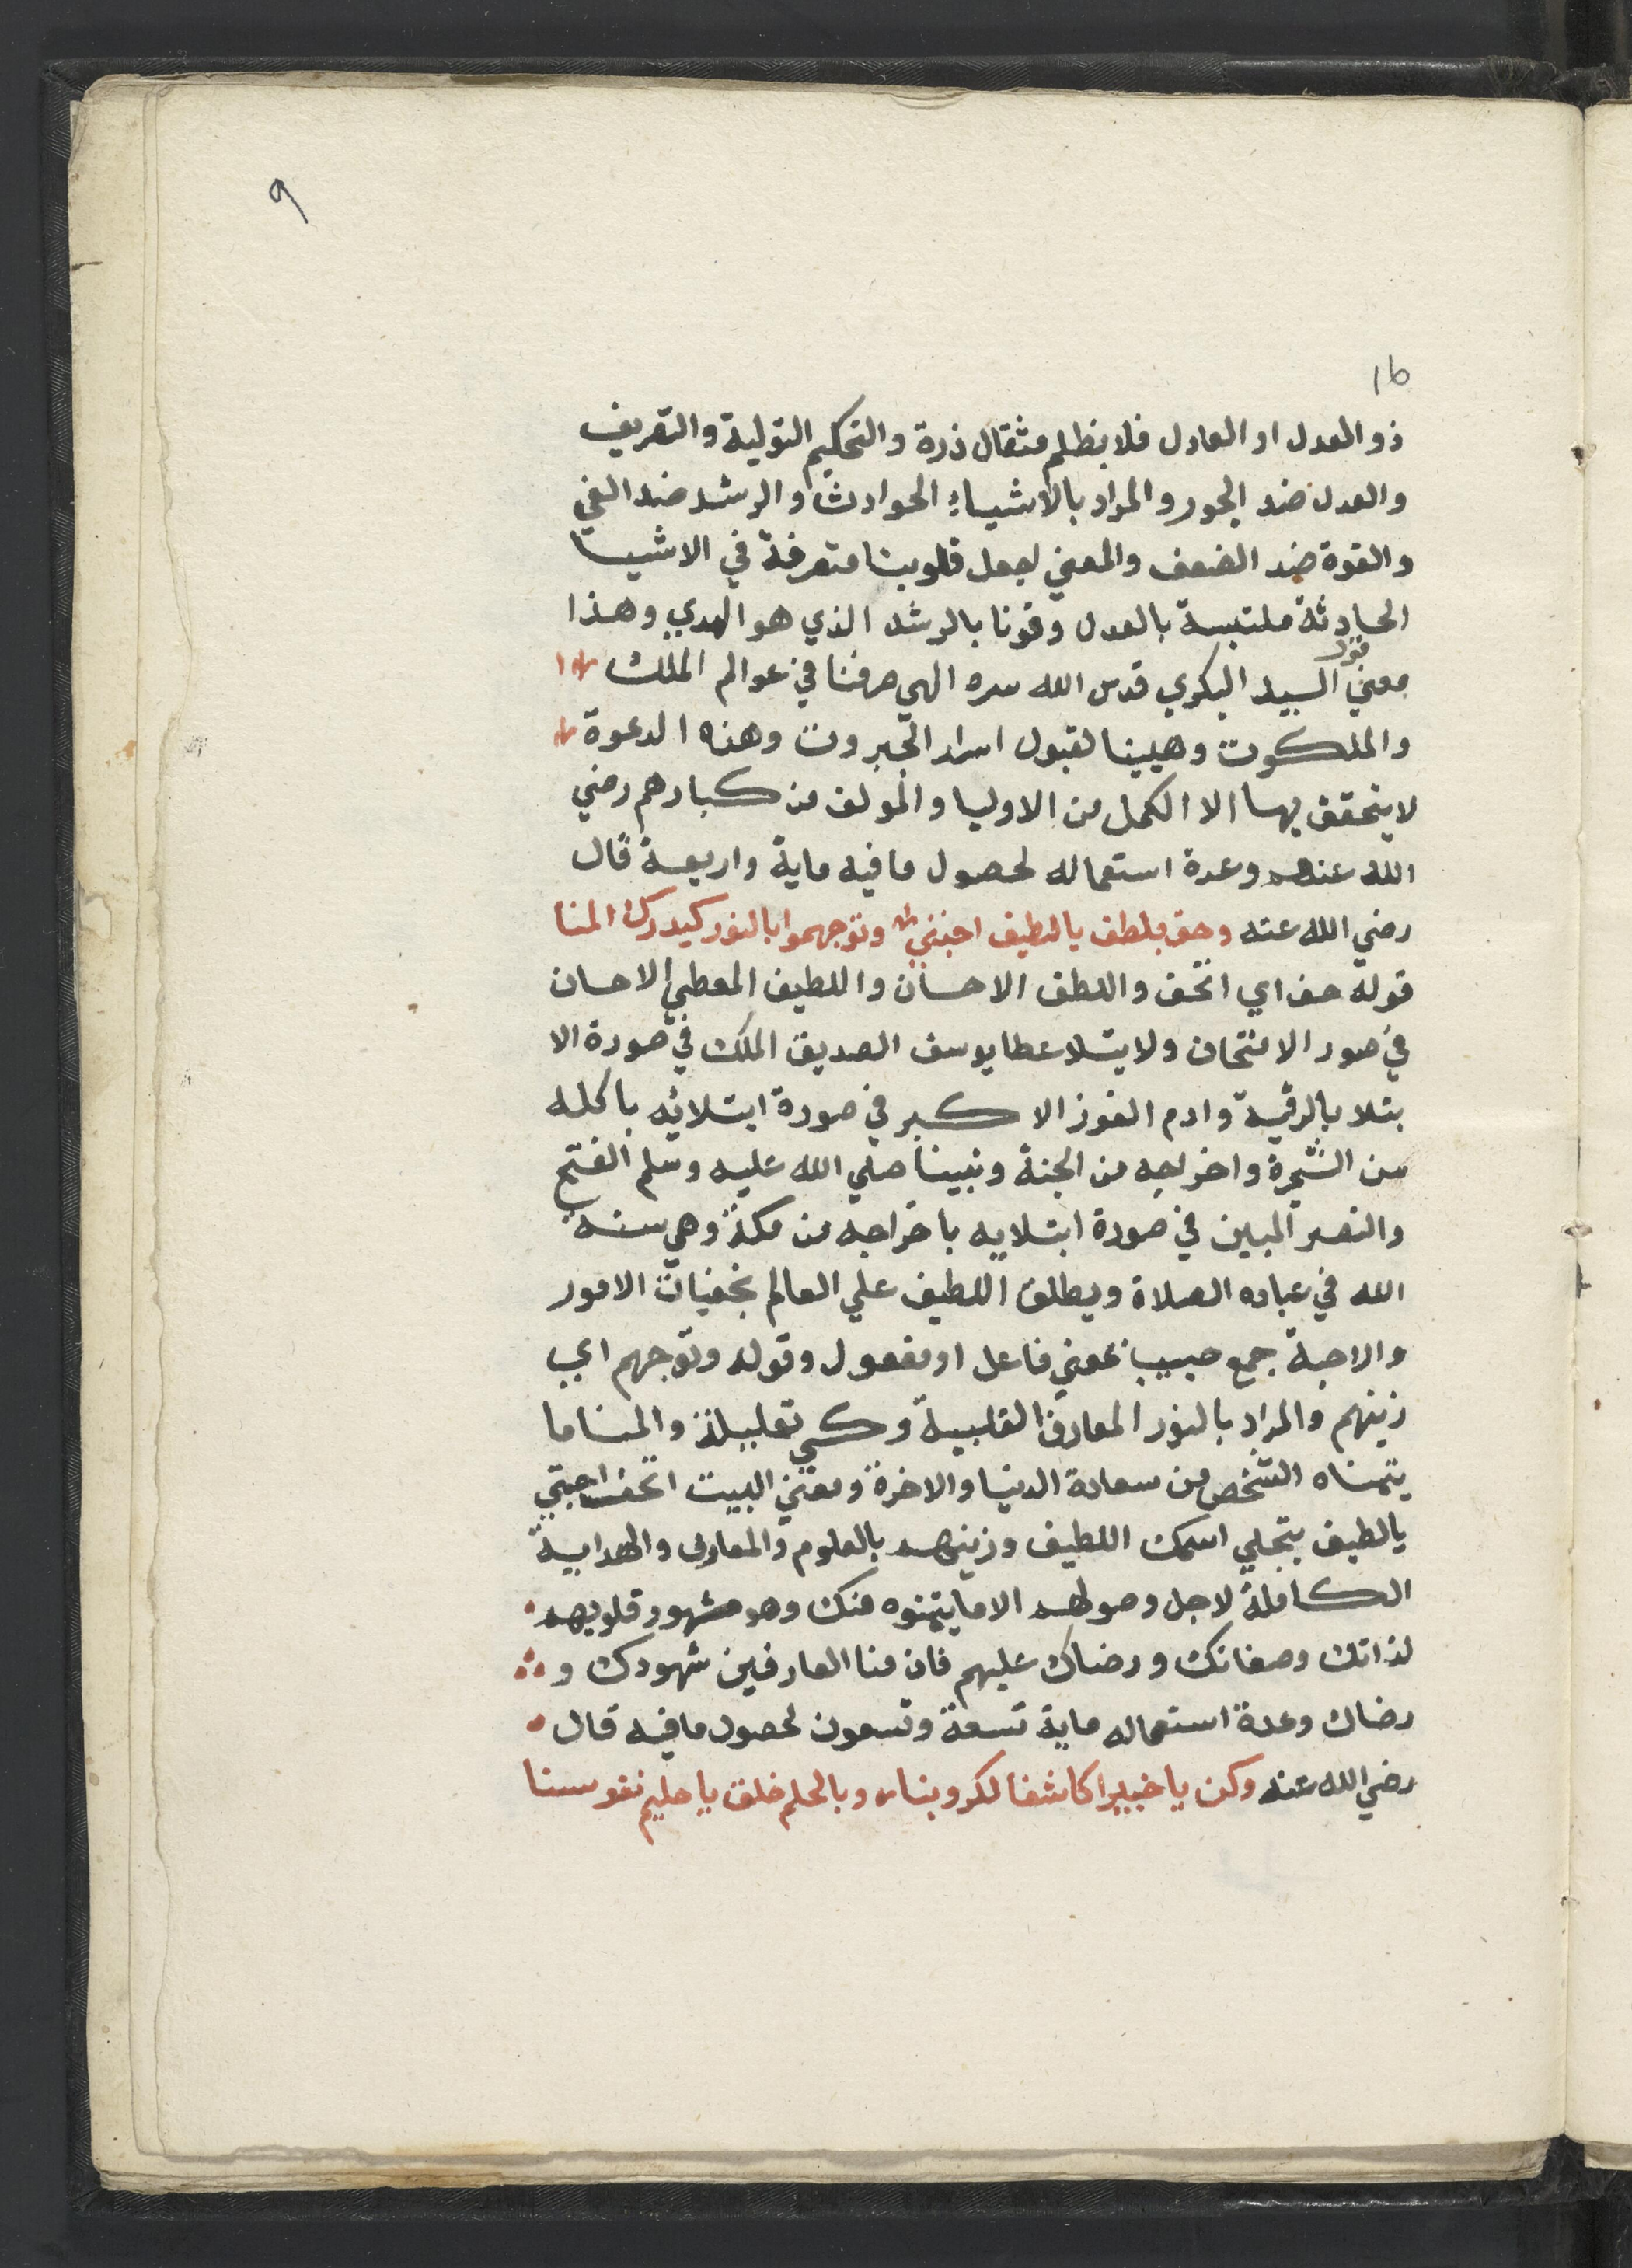 ٩
16
ذو العدل او العادل فلا يظلم مثقال ذرة والتحكيم التولية والتصريف
والعدل ضد الجور والمراد بالاشياء الحوادث والرشد ضد الغي
والقوة ضد الضعف والمعني اجعل قلوبنا متصرفة في الاشيا
الحادثة ملتبسة بالعدل وقونا بالرشد الذي هو الهدي وهذا
معني قول السيد البكري قدس الله سره الهي صرفنا في عوالم الملك
والملكوت وهيينا لقبول اسرار الجبروت وهذه الدعوة
لا يتحقق بها الا الكمل من الاوليا والمولف من كبارهم رضي
الله عنهم وعدة استعماله لحصول ما فيه ماية واربعة قال
رضي الله عنه وحف بلطف يا لطيف احبتي وتوجهموا بالنور كي يدرك المنا
قوله حف اي اتحف واللطف الاحسان واللطيف المعطي الاحسان
في صور الامتحان والابتلا عطا يوسف الصديق الملك في صورة الا
بتلا بالرقية وادم الفوز الاكبر في صورة ابتلائه باكله
من الشجرة واخراجه من الجنة ونبينا صلي الله عليه وسلم الفتح
والنصر المبين في صورة ابتلايه باخراجه من مكة وهي سنة
الله في عباده الصلاة ويطلق اللطيف علي العالم بخفيات الامور
والاحبة جمع حبيب بمعني فاعل او مفعول وقوله وتوجهم اي
زينهم والمراد بالنور المعارف القلبية وكي تعليلة والمنا ما
يتمناه الشخص من سعادة الدنيا والاخرة ومعني البيت اتحف احبتي
يا لطيف بتجلي اسمك اللطيف وزينهم بالعلوم والمعارف والهداية
الكاملة لاجل وصولهم الا ما يتمنوه منك وهو شهود قلوبهم
لذاتك وصفاتك ورضاك عليهم فان منا العارفين شهودك و
رضاك وعدة استعماله ماية تسعة وتسعون لحصول ما فيه قال
رضي الله عنه وكن يا خبيرا كاشفا لكروبنا وبالحلم خلق يا حليم نفوسنا